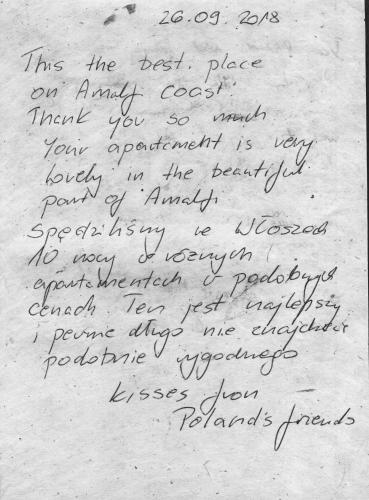 26.09.2018
This the best. place
on Amalfi coast.
Thank you so much
Your apartament is very
lovely in the beautiful
part of Amalfi
Spędziliśmy we Włoszech
10 nocy w różnych
apartamentach w podobnych
cenach. Ten jest najlepszy
i pewnie długo nie znajdziecie
podobnie wygodnego
kisses from
Poland's friends